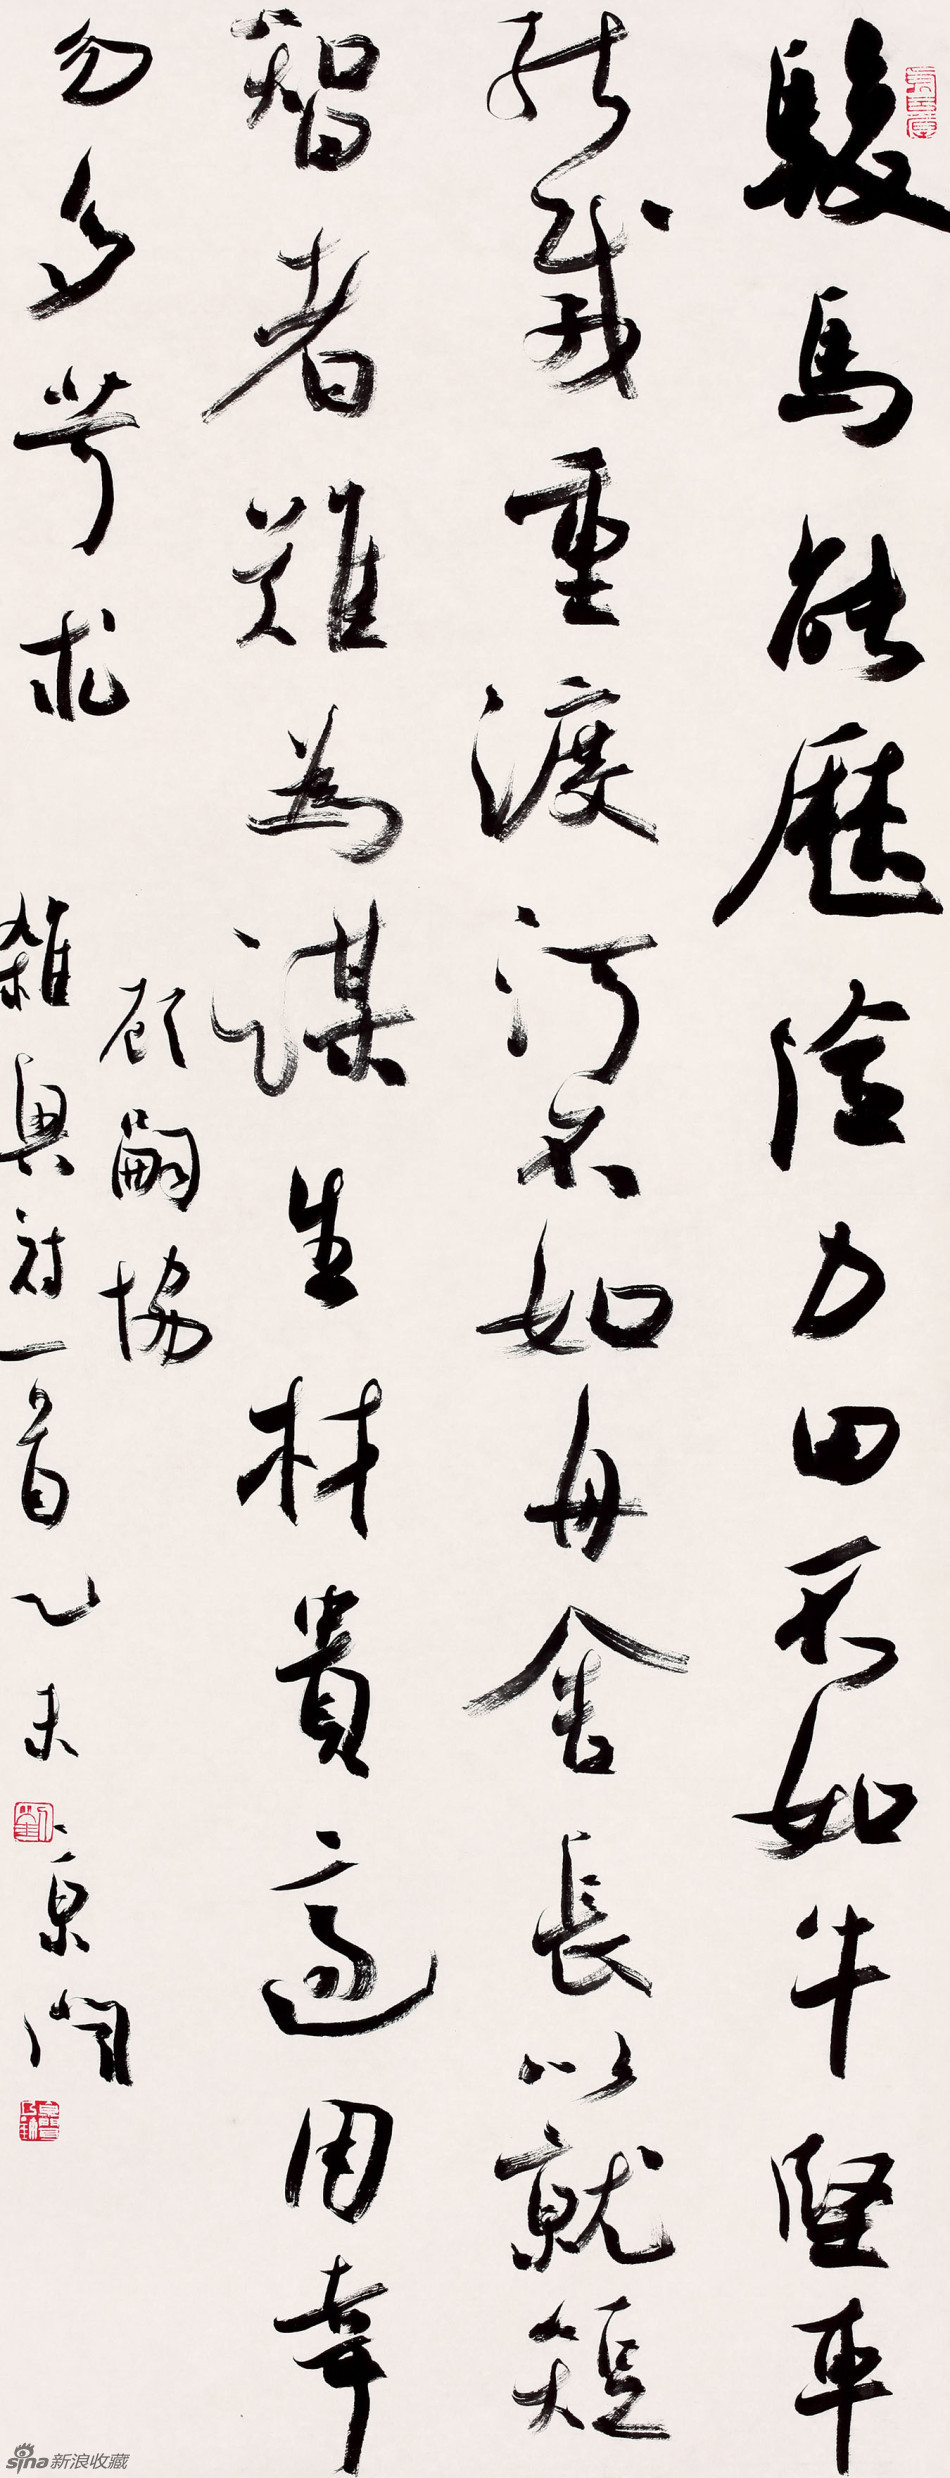 駿馬能歷險力田不如牛堅車
能載重渡河不如舟舍長以就短
智者難為謀生材貴適用幸
勿多苛求
顾嗣協
雜興詩一首乙未京聞
sina新浪收藏